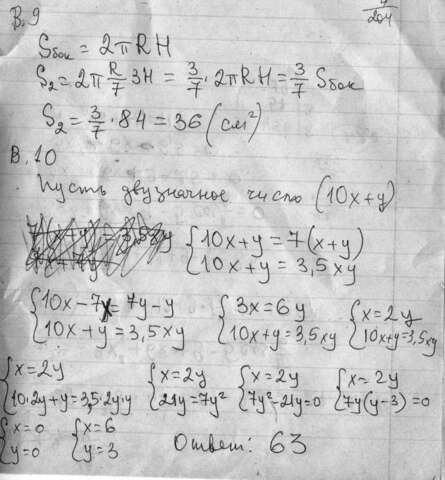 В.9
S бок = 2πRH
S₂ = 2π R/7 3H = 3/7 · 2πRH = 3/7 S бок
S₂ = 3/7 · 84 = 36 (см²)
В.10
Пусть двузначное число (10x+y)
{10x+y = 7(x+y)
10x+y = 3,5xy
{10x-7x = 7y-y
10x+y = 3,5xy
{3x = 6y
10x+y = 3,5xy
{x = 2y
10x+y = 3,5xy
{x = 2y
10·2y+y = 3,5·2y·y
{x = 2y
21y = 7y²
{x = 2y
7y²-21y = 0
{x = 2y
7y(y-3) = 0
{x = 0
y = 0
{x = 6
y = 3
Ответ: 63